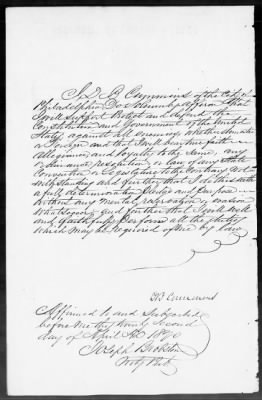 I D B Cummins of the City of
Philadelphia Do Solemnly affirm that
I will support Protect and defend the
Constitution and Government of the United
States against all enemies, whether domestic
or foreign and that I will bear true faith
Allegiance and loyalty to the same, any
ordinance resolution or law of any State
Convention or Legislature to the Contrary Not-
withstanding and further that I do this with
a full determination pledge and purpose
without any Mental reservation or evasion
Whatsoever, and further that I will well
and faithfully Perform all the duties
which may be required of me by law
D B Cummins
Affirmed to and Subscribed
before me this twenty Second
day of April AD 18
Joseph
Not Pub